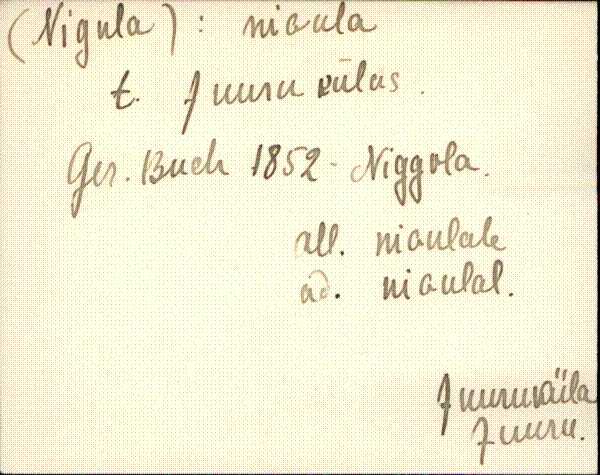 (Nigula) : nioula
t. Juuru külas.
Ger. Buch 1852 - Niggola.
all. nioulale
ad. nioulal.
Juuruväila
Juuru.